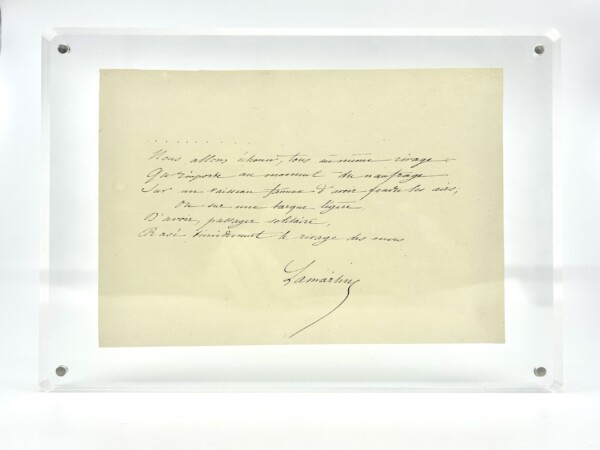 . . . . . . . . . . .
Nous allons échouer, tous au même rivage
Qu'importe au moment du naufrage
Sur un vaisseau fameux d'avoir fendu les airs,
Ou sur une barque légère
D'avoir, passager solitaire,
Rasé timidement le rivage des mers
Lamartine